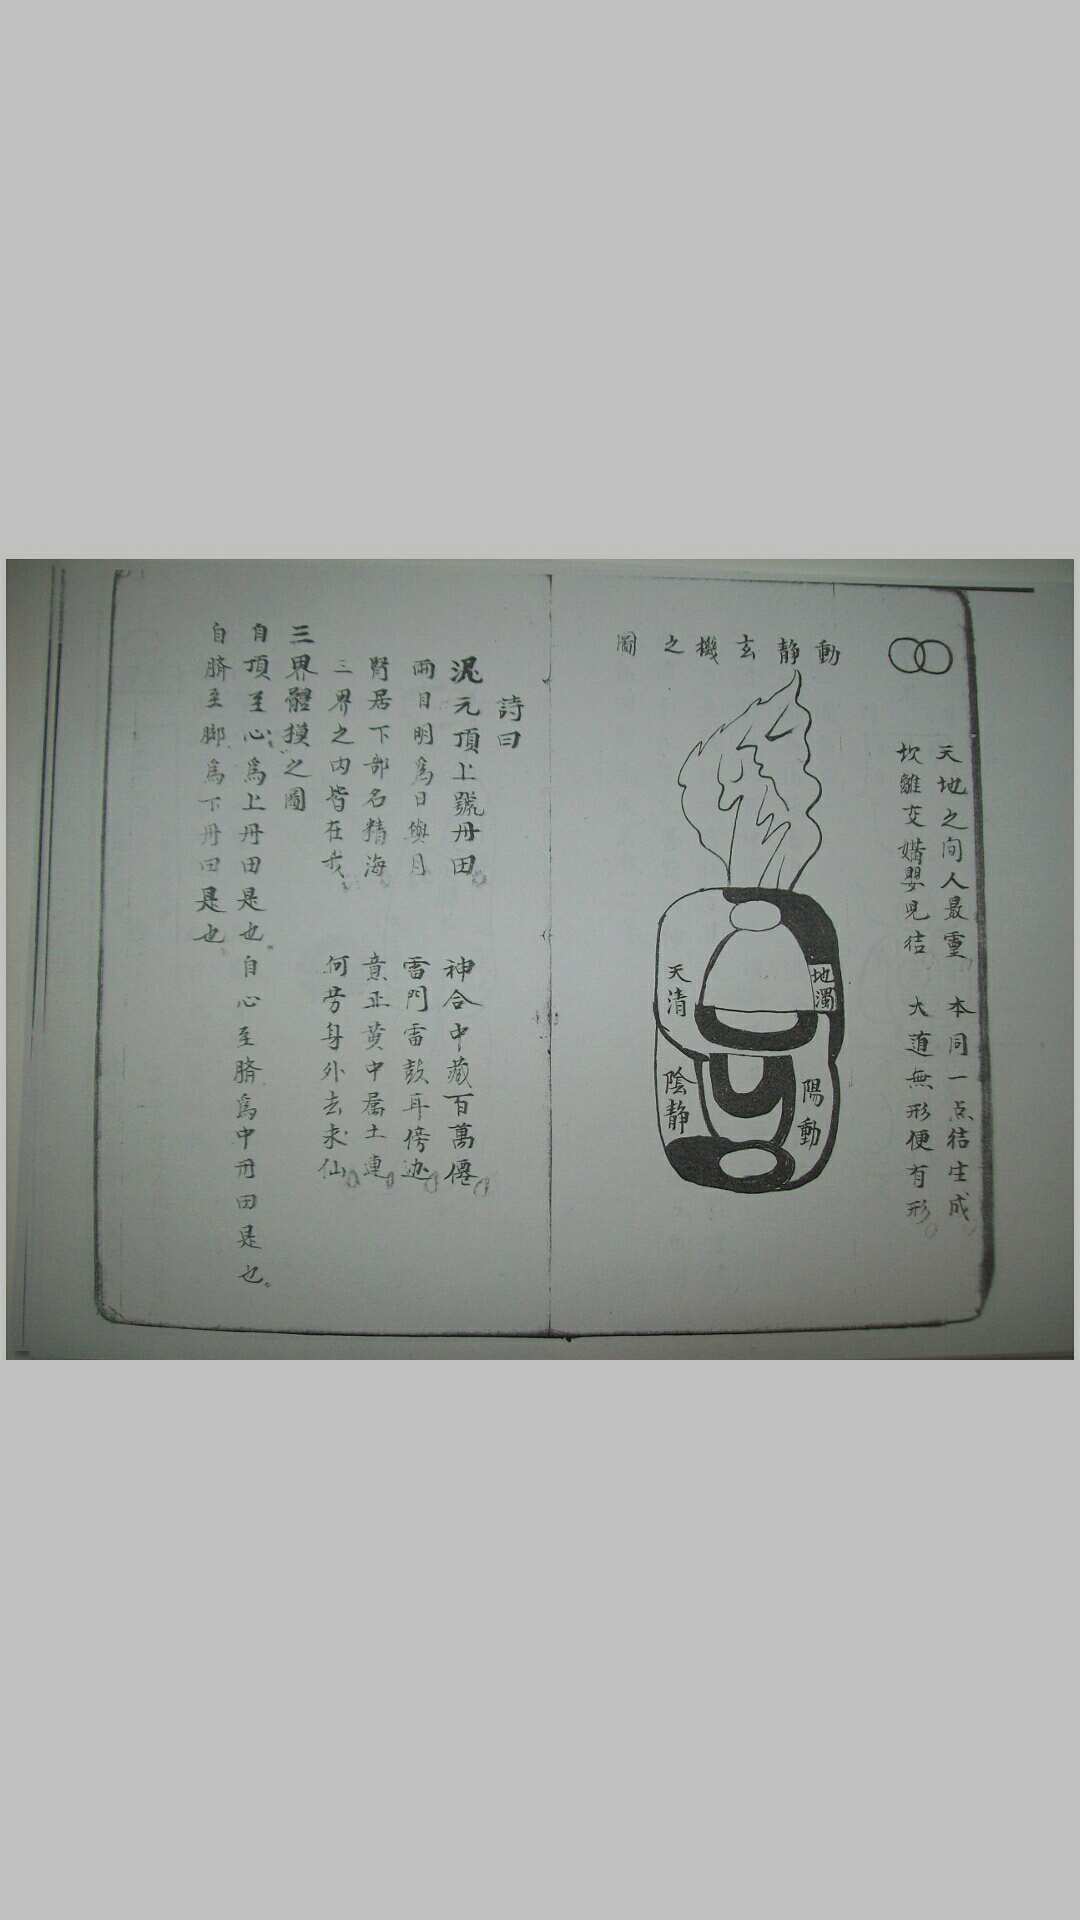 天地之间人最重　本同一点结生成
坎離交媾嬰兒结　大道無形便有形
動静玄機之圖
天清
地濁
陰静
陽動
詩曰
泥元頂上號丹田　神合中藏百萬僊
兩目明爲日與月　雷門雷鼓耳傍边
腎居下部名精海　意正黄中属土連
三界之内皆在我　何劳身外去求仙
三界體摸之圖
自頂至心爲上丹田是也。自心至臍爲中丹田是也。
自臍至脚爲下丹田是也